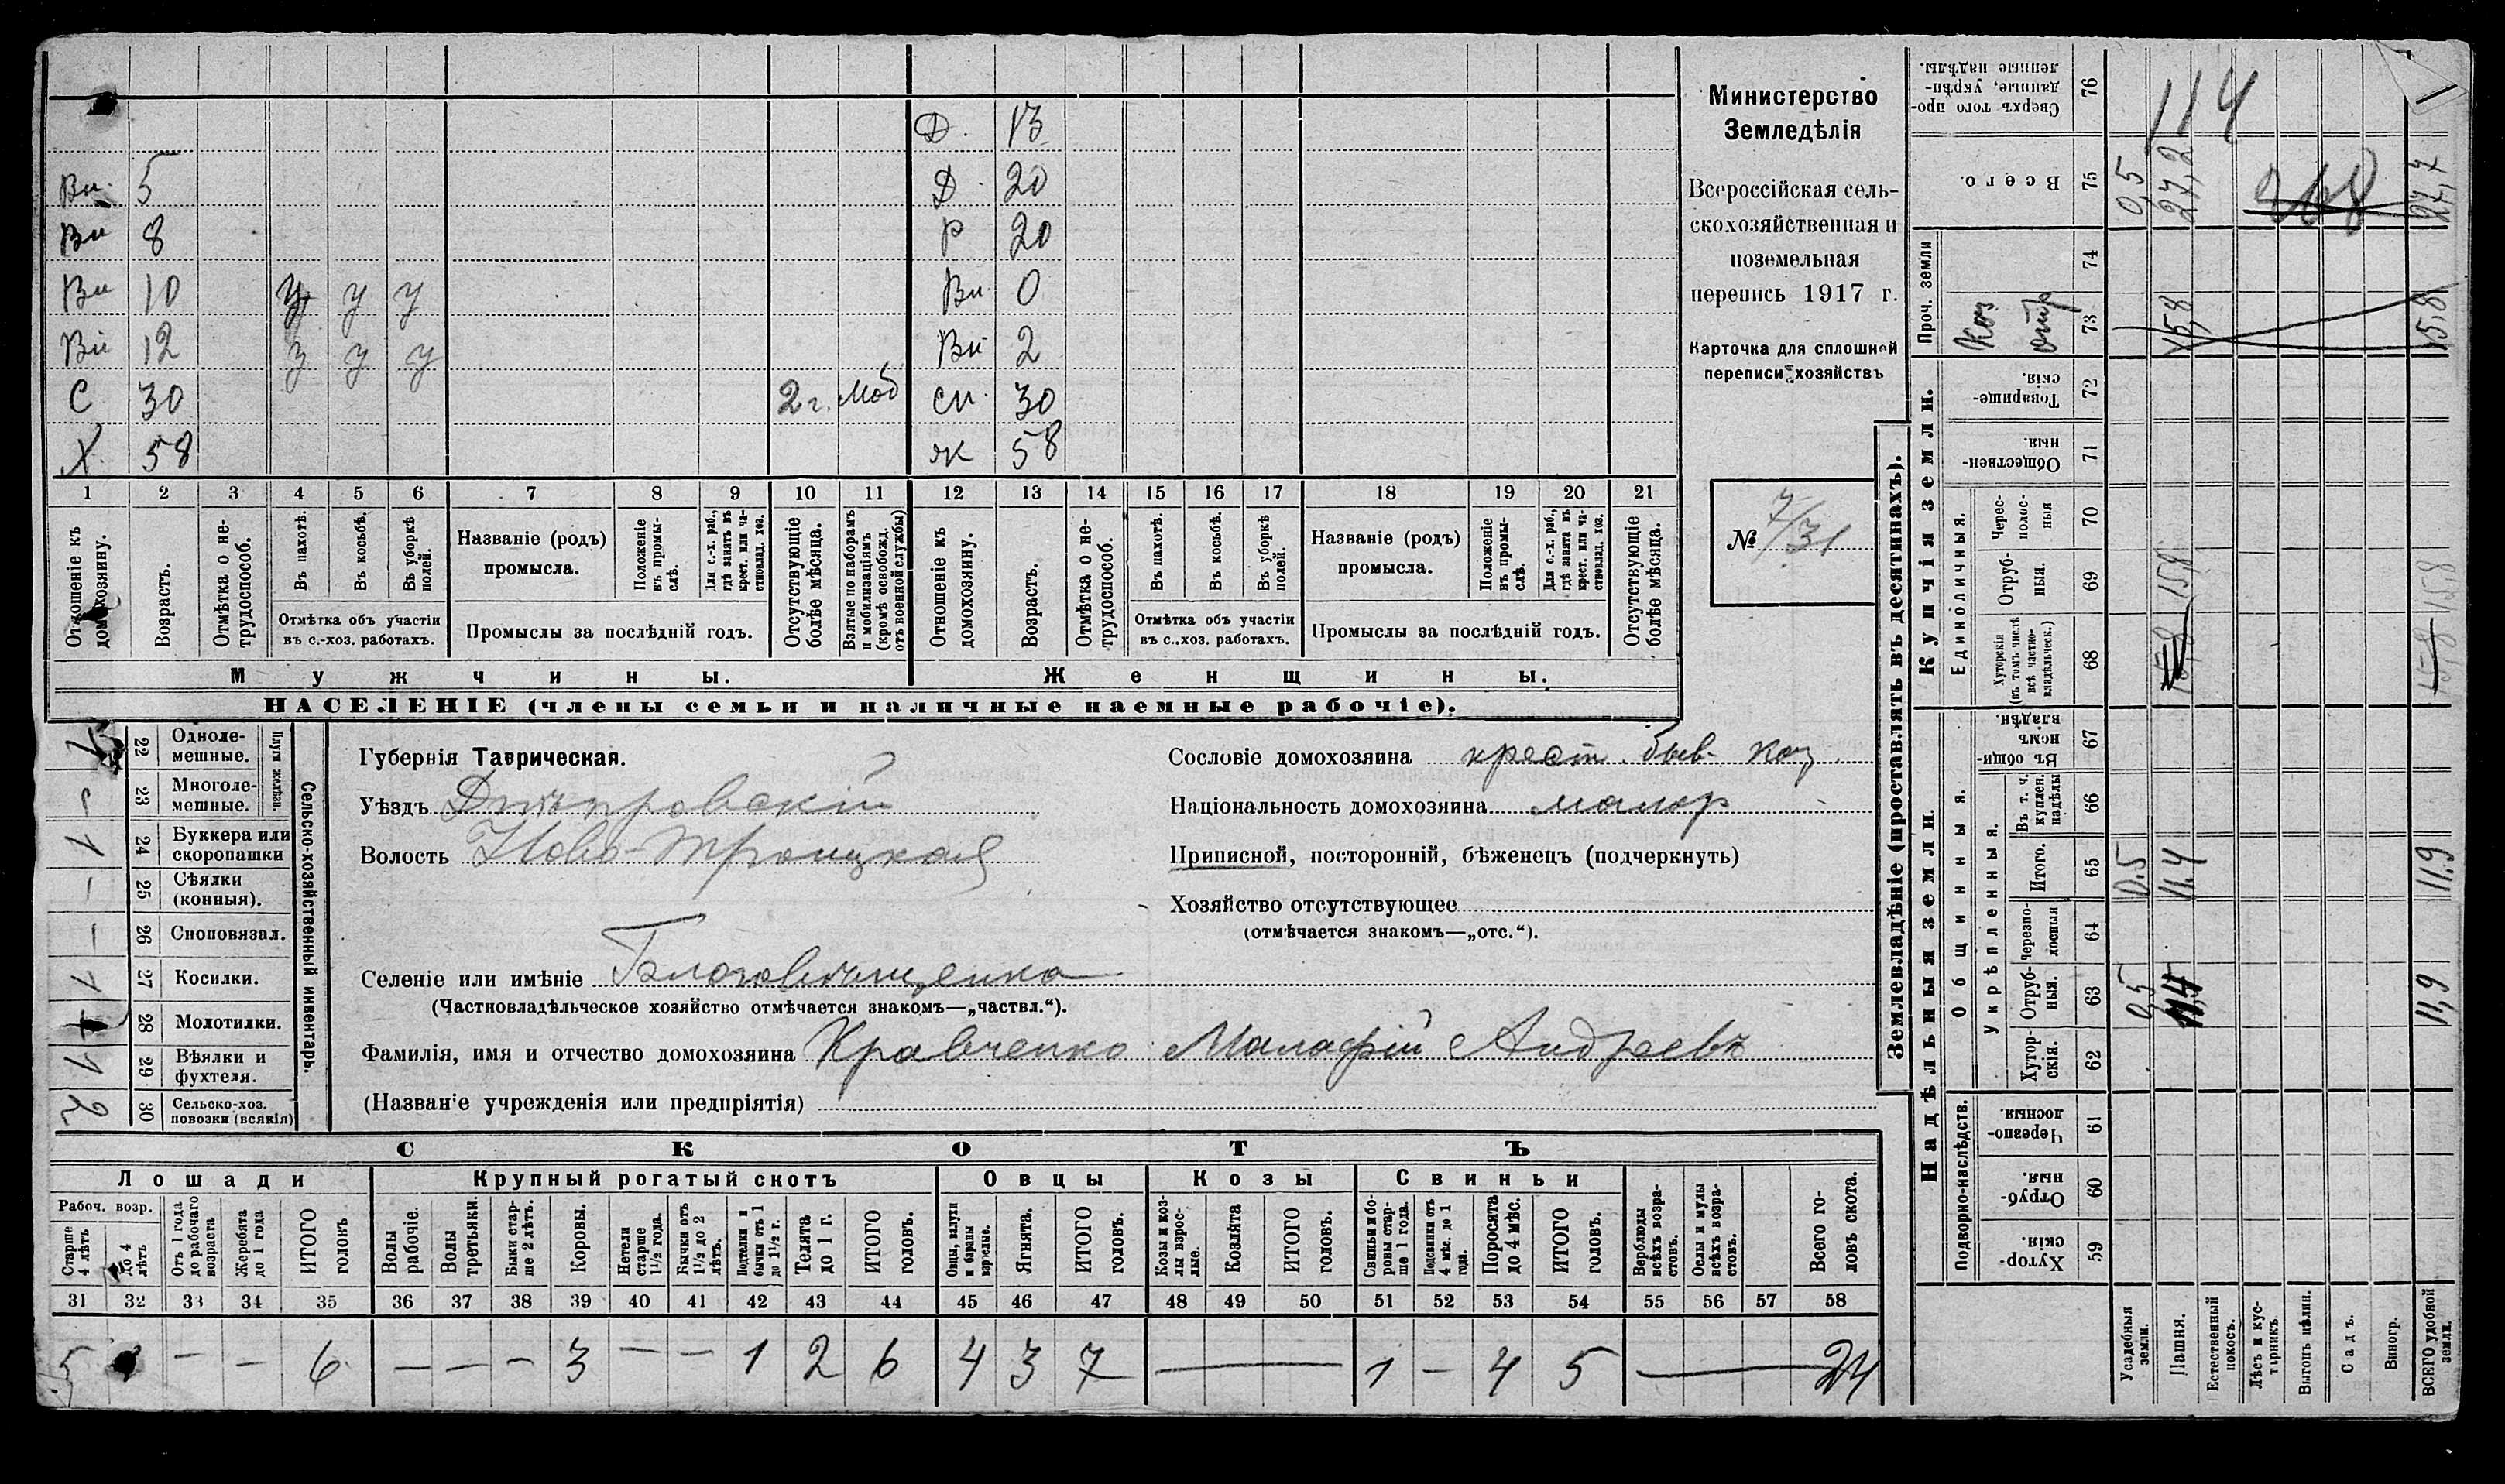 Д. 13
Вн. 5 Д. 20
Вн 8 Р 20
Вн 10 у у у Вн 0
Вн 12 з у у Вн 2
С 30 2 г. Моб сн. 30
Х. 58 ж 58
1 2 3 4 5 6 7 8 9 10 11 12 13 14 15 16 17 18 19 20 21
Отношеніе къ домохозяину.
Возрастъ.
Отмѣтка о нетрудоспособ.
Въ пахотѣ.
Въ косьбѣ.
Въ уборкѣ полей.
Отмѣтка объ участіи въ с.-хоз. работахъ.
Названіе (родъ) промысла.
Положеніе въ промыслѣ.
Для с.-х. раб., гдѣ занятъ въ крест. или частновлад. хоз.
Промыслы за послѣдній годъ.
Отсутствующіе болѣе мѣсяца.
Взятые по наборамъ и мобилизаціямъ (кромѣ освобожд. отъ военной службы)
Отношеніе къ домохозяину.
Возрастъ.
Отмѣтка о нетрудоспособ.
Въ пахотѣ.
Въ косьбѣ.
Въ уборкѣ полей.
Отмѣтка объ участіи въ с..хоз. работахъ.
Названіе (родъ) промысла.
Положеніе въ промыслѣ.
Для с.-х. раб., гдѣ занята въ крест. или частновлад. хоз.
Промыслы за послѣдній годъ.
Отсутствующіе болѣе мѣсяца.
Мужчины. Женщины.
НАСЕЛЕНІЕ (члены семьи и наличные наемные рабочіе).
Министерство
Земледѣлія
Всероссійская сель-
скохозяйственная и
поземельная
перепись 1917 г.
Карточка для сплошной
переписи хозяйствъ
№ 7/31
Сельско-хозяйственный инвентарь.
Плуги желѣзн.
22 Однолемешные. 1
23 Многолемешные. -
24 Буккера или скоропашки 1
25 Сѣялки (конныя). -
26 Сноповязал. -
27 Косилки. 1
28 Молотилки.
29 Вѣялки и фухтеля. 1
30 Сельско-хоз. повозки (всякія) 2
Губернія Таврическая.
Уѣздъ Днѣпровскій
Волость Ново-Троицкая
Селеніе или имѣніе
(Частновладѣльческое хозяйство отмѣчается знакомъ—„частвл.“).
Фамилія, имя и отчество домохозяина Кравченко Малафій Андреевъ
(Названіе учрежденія или предпріятія)
Сословіе домохозяина крест. быв. каз.
Національность домохозяина малор
Приписной, посторонній, бѣженецъ (подчеркнуть)
Хозяйство отсутствующее
(отмѣчается знакомъ—„отс.“).
СКОТЪ
Лошади Крупный рогатый скотъ Овцы Козы Свиньи
Рабоч. возр.
Старше 4 лѣтъ
До 4 лѣтъ
Отъ 1 года до рабочаго возраста
Жеребята до 1 года
ИТОГО головъ
Волы рабочіе.
Волы третьяки.
Быки старше 2 лѣтъ.
Коровы.
Нетели старше 1½ года.
Бычки отъ 1½ до 2 лѣтъ.
Подтелки и бычки отъ 1 до 1½ г.
Телята до 1 г.
ИТОГО головъ.
Овцы, валухи и бараны взрослые.
Ягнята.
ИТОГО головъ.
Козы и козлы взрослые.
Козлята
ИТОГО головъ.
Свиньи и боровы старше 1 года.
Подсвинки отъ 4 мѣс. до 1 года.
Поросята до 4 мѣс.
ИТОГО головъ.
Верблюды всѣхъ возрастовъ.
Ослы и мулы всѣхъ возрастовъ.
Всего головъ скота.
31 32 33 34 35 36 37 38 39 40 41 42 43 44 45 46 47 48 49 50 51 52 53 54 55 56 57 58
5 - - 6 - - - 3 - - 1 2 6 4 3 7 — 1 - 4 5 — 24
Землевладѣніе (проставлять въ десятинахъ).
Купчія земли.
Надѣльныя земли.
Сверхъ того проданные, укрѣпленные надѣлы. 76 114
Всего. 75 0,5 27,2 27,7
Проч. земли
74
Каз отр 73 15,8 15,8
Товарищескія. 72
Общественныя. 71
Единоличныя.
Чересполосныя 70
Отрубныя. 69 15,8 15,8
Хуторскія (въ томъ числѣ всѣ частновладѣльческ.) 68 15,8 15,8
Въ общинномъ владѣн. 67
Общинныя.
Укрѣпленныя.
Въ т. ч. куплен. надѣлы 66
Итого. 65 0.5 11.4 11.9
Черезполосныя 64
Отрубныя. 63 0,5 11,4 11,9
Хуторскія. 62
Подворно-наслѣдств.
Черезполосныя. 61
Отрубныя. 60
Хуторскія. 59
Усадебныя земли.
Пашня.
Естественный покосъ.
Лѣсъ и кустарникъ
Выгонъ цѣлин.
Садъ.
Виногр.
ВСЕГО удобной земли.